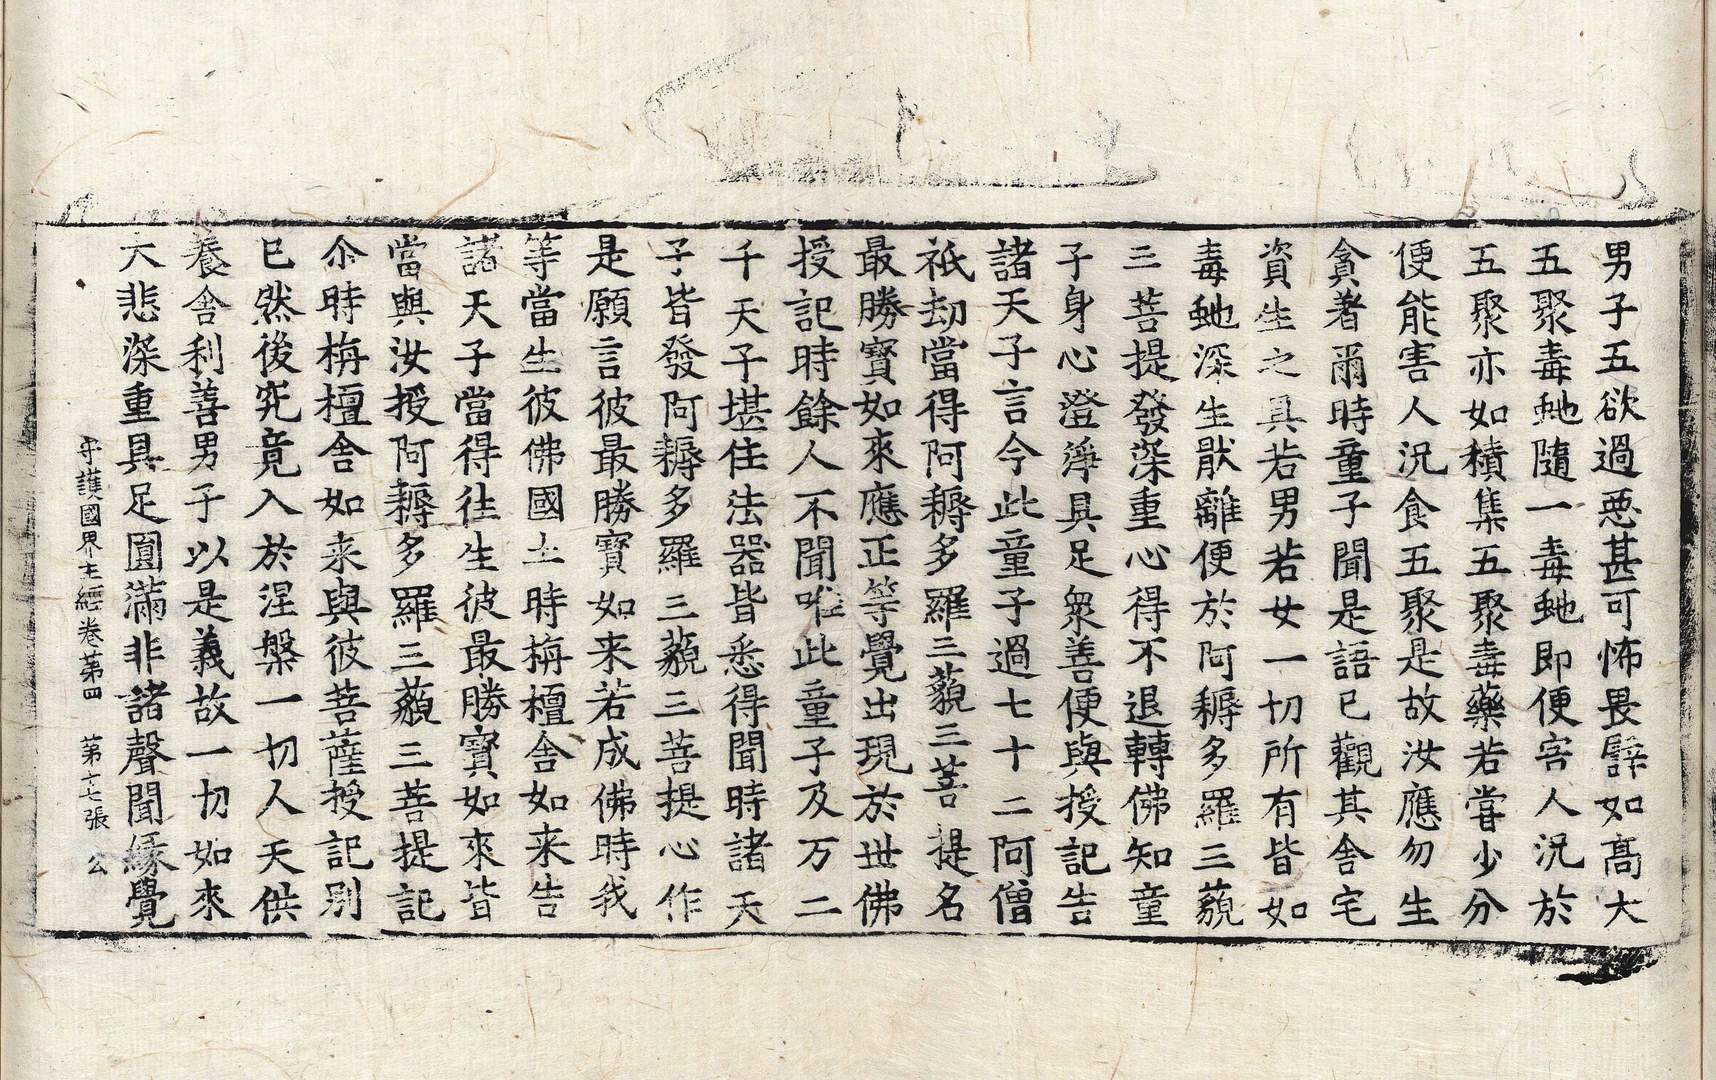 男子五欲過惡甚可怖畏譬如髙大
五聚毒虵隨一毒虵即便害人況於
五聚亦如積集五聚毒藥若甞少分
便能害人況食五聚是故汝應勿生
貪著爾時童子聞是語已觀其舍宅
資生之具若男若女一切所有皆如
毒虵深生厭離便於阿耨多羅三藐
三菩提發深重心得不退轉佛知童
子身心澄淨具足衆善便與授記告
諸天子言今此童子過七十二阿僧
祇劫當得阿耨多羅三藐三菩提名
最勝寶如來應正等覺出現於世佛
授記時餘人不聞唯此童子及万二
千天子堪任法器皆悉得聞時諸天
子皆發阿耨多羅三藐三菩提心作
是願言彼最勝寶如来若成佛時我
等當生彼佛國土時栴檀舍如来告
諸天子當得往生彼最勝寶如來皆
當與汝授阿耨多羅三藐三菩提記
尒時栴檀舍如来與彼菩薩授記別
已然後究竟入於涅槃一切人天供
養舍利善男子以是義故一切如來
大悲深重具足圓滿非諸聲聞緣覺
守護國界主經卷第四 第十七張 公